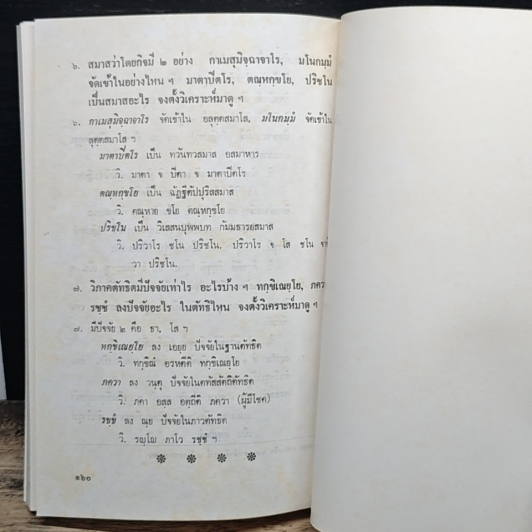 ๖. สมาสว่าโดยกิจมี ๒ อย่าง กาเมสุมิจฺฉาจาโร, มโนกมฺมํ
จัดเข้าในอย่างไหน ฯ มาตาปิตโร, ตณฺหกฺขโย, ปริชโน
เป็นสมาสอะไร จงตั้งวิเคราะห์มาดู ฯ
๖. กาเมสุมิจฺฉาจาโร จัดเข้าใน อลุตฺตสมาโส, มโนกมฺมํ จัดเข้าใน
ลุตฺตสมาโส ฯ
มาตาปิตโร เป็น ทวันทวสมาส อสมาหาร
วิ. มาตา จ ปิตา จ มาตาปิตโร
ตณฺหกฺขโย เป็น ฉัฏฐีตัปปุริสสมาส
วิ. ตณฺหาย ขโย ตณฺหกฺขโย
ปริชโน เป็น วิเสสนบุพพบท กัมมธารยสมาส
วิ. ปริวาโร ชโน ปริชโน. ปริวาโร จ โส ชโน
วา ปริชโน.
๗. วิภาคตัทธิตมีปัจจัยเท่าไร อะไรบ้าง ฯ ทกฺขิเณยฺโย, ภควา
รชฺชํ ลงปัจจัยอะไร ในตัทธิไหน จงตั้งวิเคราะห์มาดู ฯ
๗. มีปัจจัย ๒ คือ ธา, โส ฯ
ทกฺขิเณยฺโย ลง เอยฺย ปัจจัยในฐานตัทธิต
วิ. ทกฺขิณํ อรหตีติ ทกฺขิเณยฺโย
ภควา ลง วนฺตุ ปัจจัยในตทัสสัตถิตัทธิต
วิ. ภคา อสฺส อตฺถีติ ภควา (ผู้มีโชค)
รชฺชํ ลง ณฺย ปัจจัยในภาวตัทธิต
วิ. รญฺโญ ภาโว รชฺชํ ฯ
๑๖๐